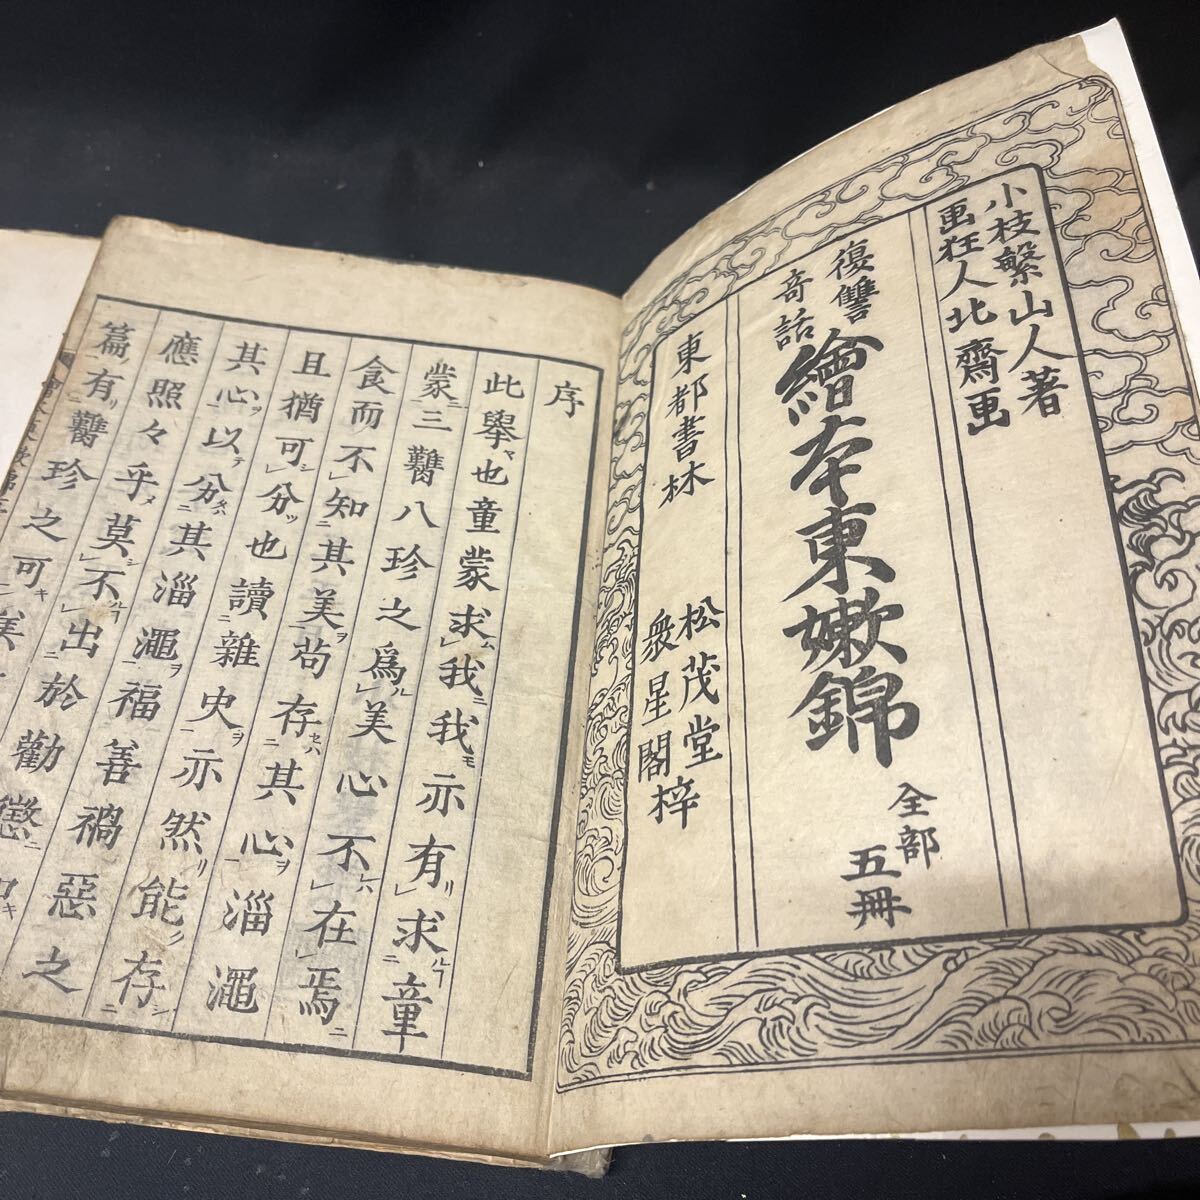 小枝繁山人著
画狂人北齋画
復讐
奇話
繪本東嫩錦
全部
五冊
東都書林
松茂堂
衆星閣梓
序
此擧也童蒙求我我亦有求童
蒙三臡八珍之爲美心不在焉
食而不知其美苟存其心淄澠
且猶可分也讀雜史亦然能存
其心以分其淄澠福善禍惡之
應照々乎莫不出於勸懲
篇有臡珍之可美